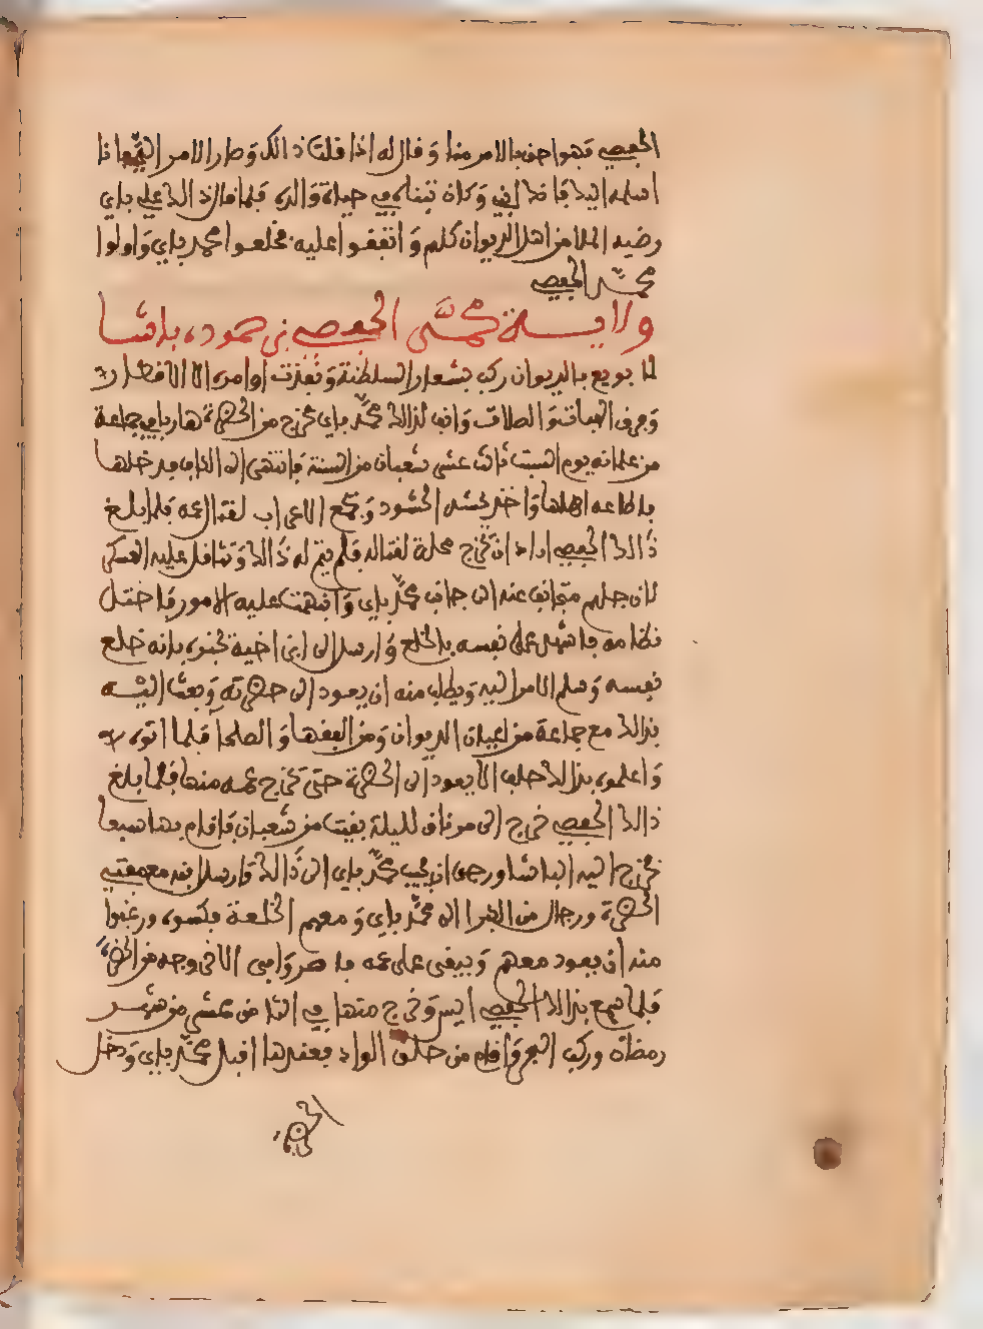 الحفصي فهو احق بالامر منا وقال له اذا قلت ذالك وصار الامر اليه فانا
اسلمه اليه فانه ابني وكان تبناه في حياة والده فلما قال ذالك علي باي
رضيه الملا من اهل الديوان كلهم واتفقوا عليه فخلعوا محمد باي واولوا
محمد الحفصي
ولاية محمد الحفصي بن حموده باشا
لما بويع بالديوان ركب بشعار السلطنة ونفذت اوامره الا الاقطار
وفرق و الصلاة وانف لذالك محمد باي فخرج من الحضرة هاربا في جماعة
من غلمانه يوم السبت ثالث عشر شعبان من السنة فانتهى الى الكاف فدخلها
باطاعه اهلها واخذ بحشد الحشود وجمع الاعراب لقتال عمه فلما بلغ
ذالك الحفصي اراد ان يخرج محلة لقتاله فلم يتم له ذالك وتثاقل عليه العسكر
لان جلهم متجانف عنه الى جانب محمد باي وانبهمت عليه الامور فاختل
نظامه فاشهد على نفسه بالخلع وارسل الى ابن اخيه يخبره بانه خلع
نفسه وسلم الامر اليه ويطلب منه ان يعود الى حضرته وبعث اليه
بذالك مع جماعة من اعيان الديوان ومن الفقها والصلحا فلما اتوه
واعلموه بذالك حلف الا يعود الى الحضرة حتى يخرج عمه منها فلما بلغ
ذالك الحفصي خرج الى مرناق لليلة بقيت من شعبان فاقام بها سبعا
فخرج اليه الباشا ورجى ان يجيب محمد باي الى ذالك وارسل ابنه مع مفتيه
الحضرة ورجال من الكبرا الى محمد باي ومعهم الخلعة فكسوه ورغبوا
منه ان يعود معهم ويبقى على عمه فاصر وابى الا خروجه من الحضرة
فلما سمع بذالك الحفصي ايس وخرج منها في الثامن عشر من شهر
رمضان وركب البحر واقام من حلق الواد فعندها اقبل محمد باي ودخل
الحضرة